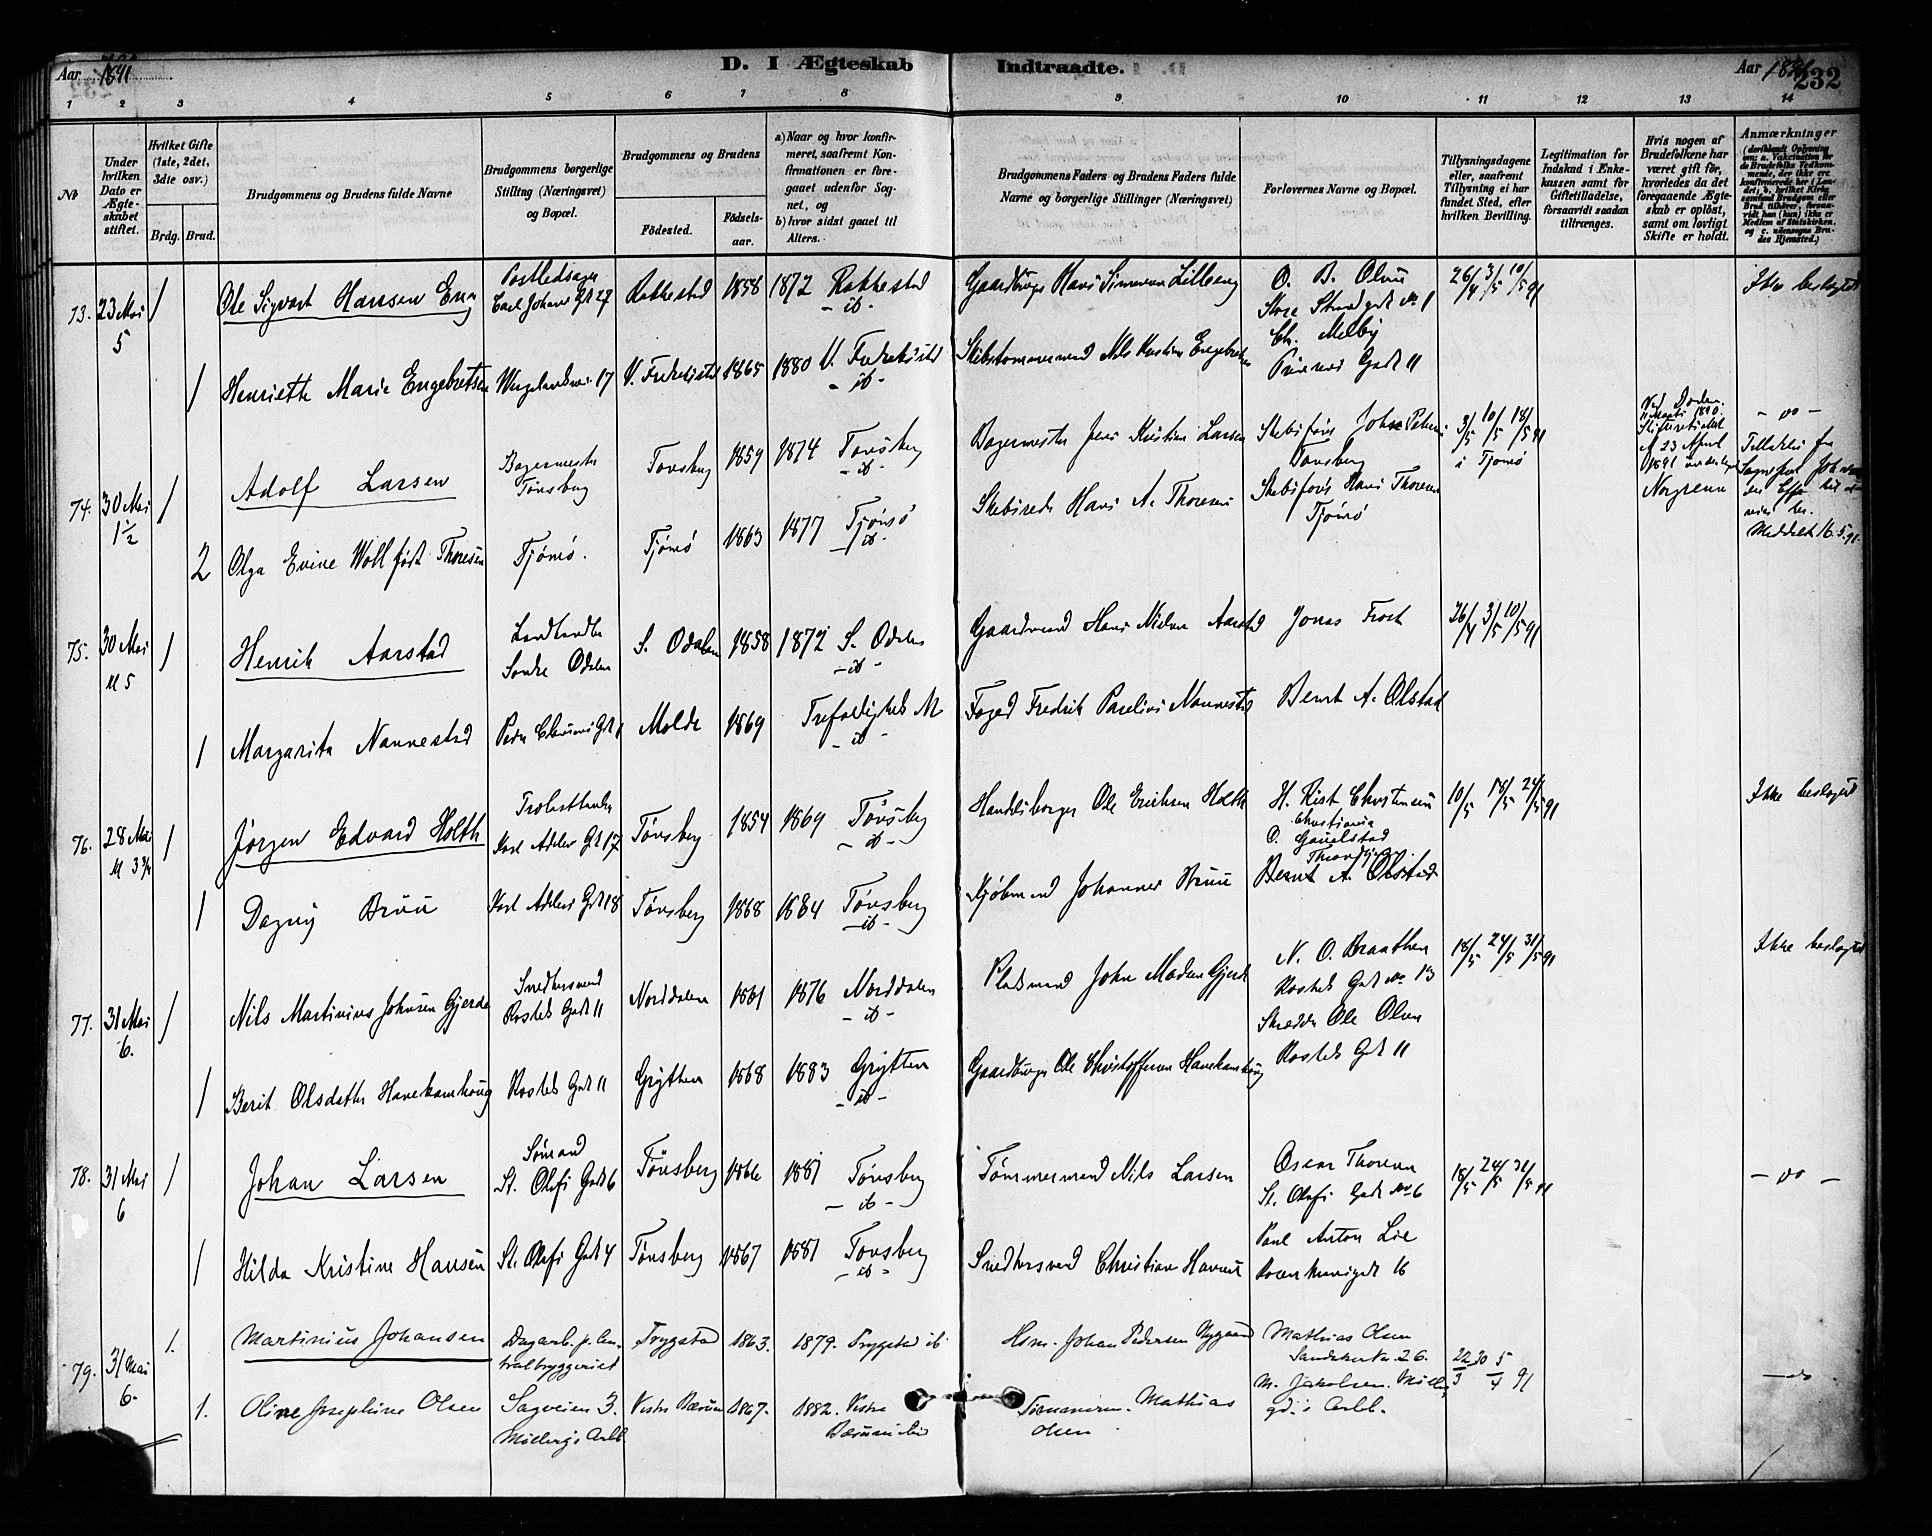 Aar 1891
D. I Ægteskab
Indtraadte.
Aar 1891
232
1 2 3 4 5 6 7 8 9 10 11 12 13 14
No
Under hvilken Dato er Ægteskabet stiftet.
Hvilket Gifte (1ste, 2det, 3die osv.)
Brdg. Brud.
Brudgommens og Brudens fulde Navne
Brudgommens borgerlige Stilling (Næringsvei) og Bopæl.
Brudgommens og Brudens
Födested.
Födselsaar.
a) Naar og hvor konfirmeret, saafremt Konfirmationen er foregaaet udenfor Sognet, og
b) hvor sidst gaaet til Alters.
Brudgommens Faders og Brudens Faders fulde Navne og borgerlige Stillinger (Næringsvei)
Forlovernes Navne og Bopæl.
Tillysningsdagene eller, saafremt Tillysning ei har fundet Sted, efter hvilken Bevilling.
Legitimation for Indskud i Enkekassen samt for Giftetilladelse, forsaavidt saadan tiltrænges.
Hvis nogen af Brudefolkene har været gift för, hvorledes da det foregaaende Ægteskab er oplöst, samt om lovligt Skifte er holdt.
Anmærkninger
73. 23 Mai 5 / Ole Sigvart Hansen Eng Carl Johans Gd 27 Rakkestad 1858 1872 Rakkestad - ib - Gaardbruger Hans Simensen Lilleeng O. B. Olsen Store Strandgade No 1 26/4 3/5 10/5 91 Ikke beslægtet
1 Henriette Marie Engebretsen 17 V. Fredrikstad 1865 1880 V. Fredrikstad - ib - Skibstømmermand Nils Engebretsen Ch. Melby 11
74. 30 Mai 1½ / Adolf Larsen Bagermester Tønsberg Tønsberg 1859 1874 Tønsberg - ib - Bagermester Jens Kristian Larsen Skibsfører Tønsberg 3/5 10/5 18/5 91 i Tjømø - do -
2 Olga Evine Woll født Thoresen Tjømø. Tjømø 1863 1877 Tjømø - ib - Skibsreder Hans A. Thoresen Skibsfører Hans Thoresen Tjømø Meddelt 16.5.91.
75. 30 Mai Kl 5 / Henrik Aarstad Landhandler Søndre Odalen S. Odalen 1858 1872 S. Odalen - ib - Gaardmand Hans Nielsen Aarstad Jonas Frost 26/4 3/5 10/5 91
1 Margarita Nannestad Molde 1869 Trefoldigheds M - ib - Foged Fredrik Nannestad Bernt A. Olstad
76. 28 Mai Kl 3¾ / Jørgen Edvard Holth Carl Adelers Gd 17 Tønsberg 1854 1869 Tønsberg - ib - Handelsborger Ole Eriksen Holth H. Kist Christensen Christiania 10/5 18/5 24/5 91 Ikke beslægtet
1 Dagny Bruu Carl Adelers Gd 18 Tønsberg 1868 1884 Tønsberg - ib - Kjøbmand Johannes Bruu Bernt A. Olstad
77. 31 Mai 6. / Nils Martinius Johnsen Gjerde Snedkersvend Rosteds Gade 11 Norddalen 1861 1876 Norddalen - ib - Pladsmand John Madsen Gjerde N. O. Braathen Rosteds Gade No 13 18/5 24/5 31/5 91 Ikke beslægtet
1 Berit Olsdatter Havekamhoug Rosteds Gade 11 Grytten 1868 1883 Grytten - ib - Gaardbruger Ole Christoffersen Havekamhoug Skrædder Ole Olsen Rosteds Gd 11
78. 31 Mai 6 / Johan Larsen Sømand St. Olafs Gade 6 Tønsberg 1866 1881 Tønsberg - ib - Tømmermand Nils Larsen Oscar Thoresen St. Olafs Gade No 6 18/5 24/5 31/5 91 - do -
1 Hilda Kristine Hansen St. Olafs Gade 4 Tønsberg 1867 1881 Tønsberg - ib - Snedkersvend Christian Hansen Paul Anton Lie Rosenkransgade 16
79. 31 Mai 6. 1. Martinius Johansen Dagarb. p. Centralbryggeriet Trygstad 1863. 1879. Trygstad ib Hsm. Johan Pedersen Nygaard Mathias Olsen Sandaker No. 26. 22/3 30 5/4 91 - do
1. Oline Josephine Olsen Sagveien 3. Vestre Bærum 1867. 1882. Vestre Bærum ib Mathias Olsen M. Jakobsen